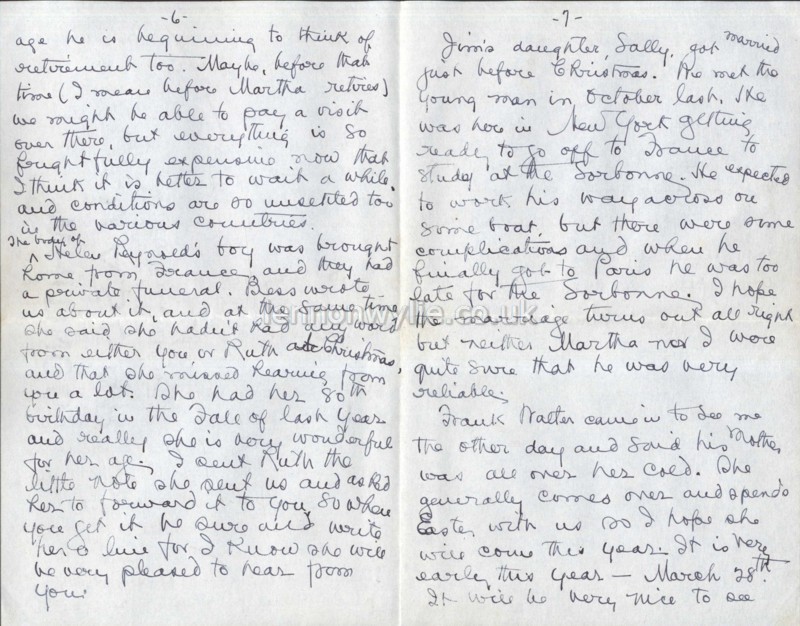 -6-
age he is beginning to think of
retirement too. Maybe, before that
time (I mean before Martha retires)
we might be able to pay a visit
over there, but everything is so
frightfully expensive now that
I think it is better to wait a while,
and conditions are so unsettled too
in the various countries.
The body of
Helen Reynold's boy was brought
home from France, and they had
a private funeral. Bess wrote
us about it, and at the same time
she said she hadn't had any word
from either you or Ruth at Christmas,
and that she missed hearing from
you a lot. She had her 80th
birthday in the Fall of last year
and really she is very wonderful
for her age. I sent Ruth the
little note she sent us and asked
her to forward it to you, so when
you get it be sure and write
her a line for I know she will
be very pleased to hear from
you.
-7-
Jim's daughter, Sally, got married
just before Christmas. She met the
young man in October last. He
was here in New York getting
ready to go off to France to
study at the Sorbonne. He expected
to work his way across on
some boat, but there were some
complications and when he
finally got to Paris he was too
late for the Sorbonne. I hope
the marriage turns out all right
but neither Martha nor I were
quite sure that he was very
reliable.
Frank Walter came in to see me
the other day and said his Mother
was all over her cold. She
generally comes over and spends
Easter with us so I hope she
will come this year. It is very
early this year - March 28th.
It will be very nice to see
lennonwylie.co.uk